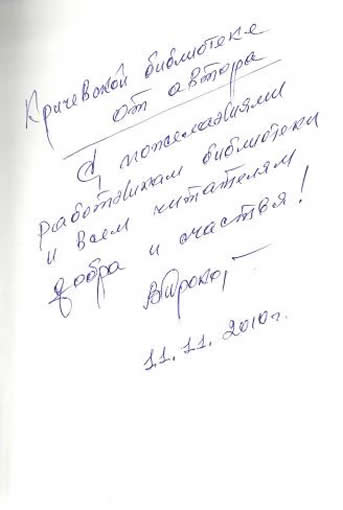 Кричевской библиотеке
от автора
С пожеланиями
работникам библиотеки
и всем читателям
добра и счастья!
11.11.2010г.